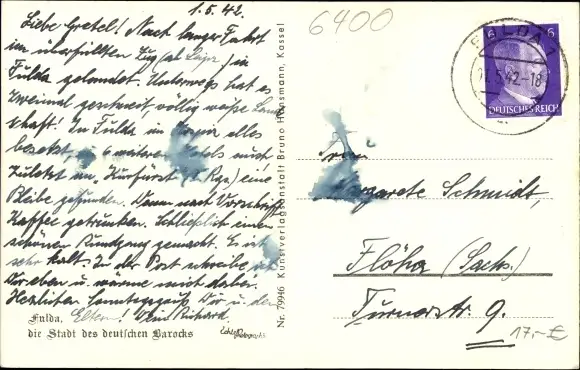 1.5.42.
Liebe Gretel! Nach langer Fahrt
im überfüllten Zug (ab Leipz.) in
Fulda gelandet. Unterwegs hat es
zweimal geschneit, völlig weiße Land
schaft! In Fulda im alles
besetzt, 6 weiteren Hotels auch
zuletzt im, Kurfürst eine
Bleibe gefunden. Dann nach Vorschrift
Kaffee getrunken. Schließlich einen
schönen Rundgang gemacht. Es ist
sehr kalt. In der Post schreibe ich
Dir eben u. wärme mich dabei.
Herzlichen Sonntagsgruß Dir u. den
Eltern! Dein Richard
Fulda,
die Stadt des deutschen Barocks
Echte Fotografie
Nr. 79946 Kunstverlagsanstalt Bruno Hansmann, Kassel
6400
FULDA 1
.5.42-18
6 6
DEUTSCHES REICH
Frau
Margarete Schmidt,
Flöha (Sachs.)
Turnerstr. 9.
17,-€